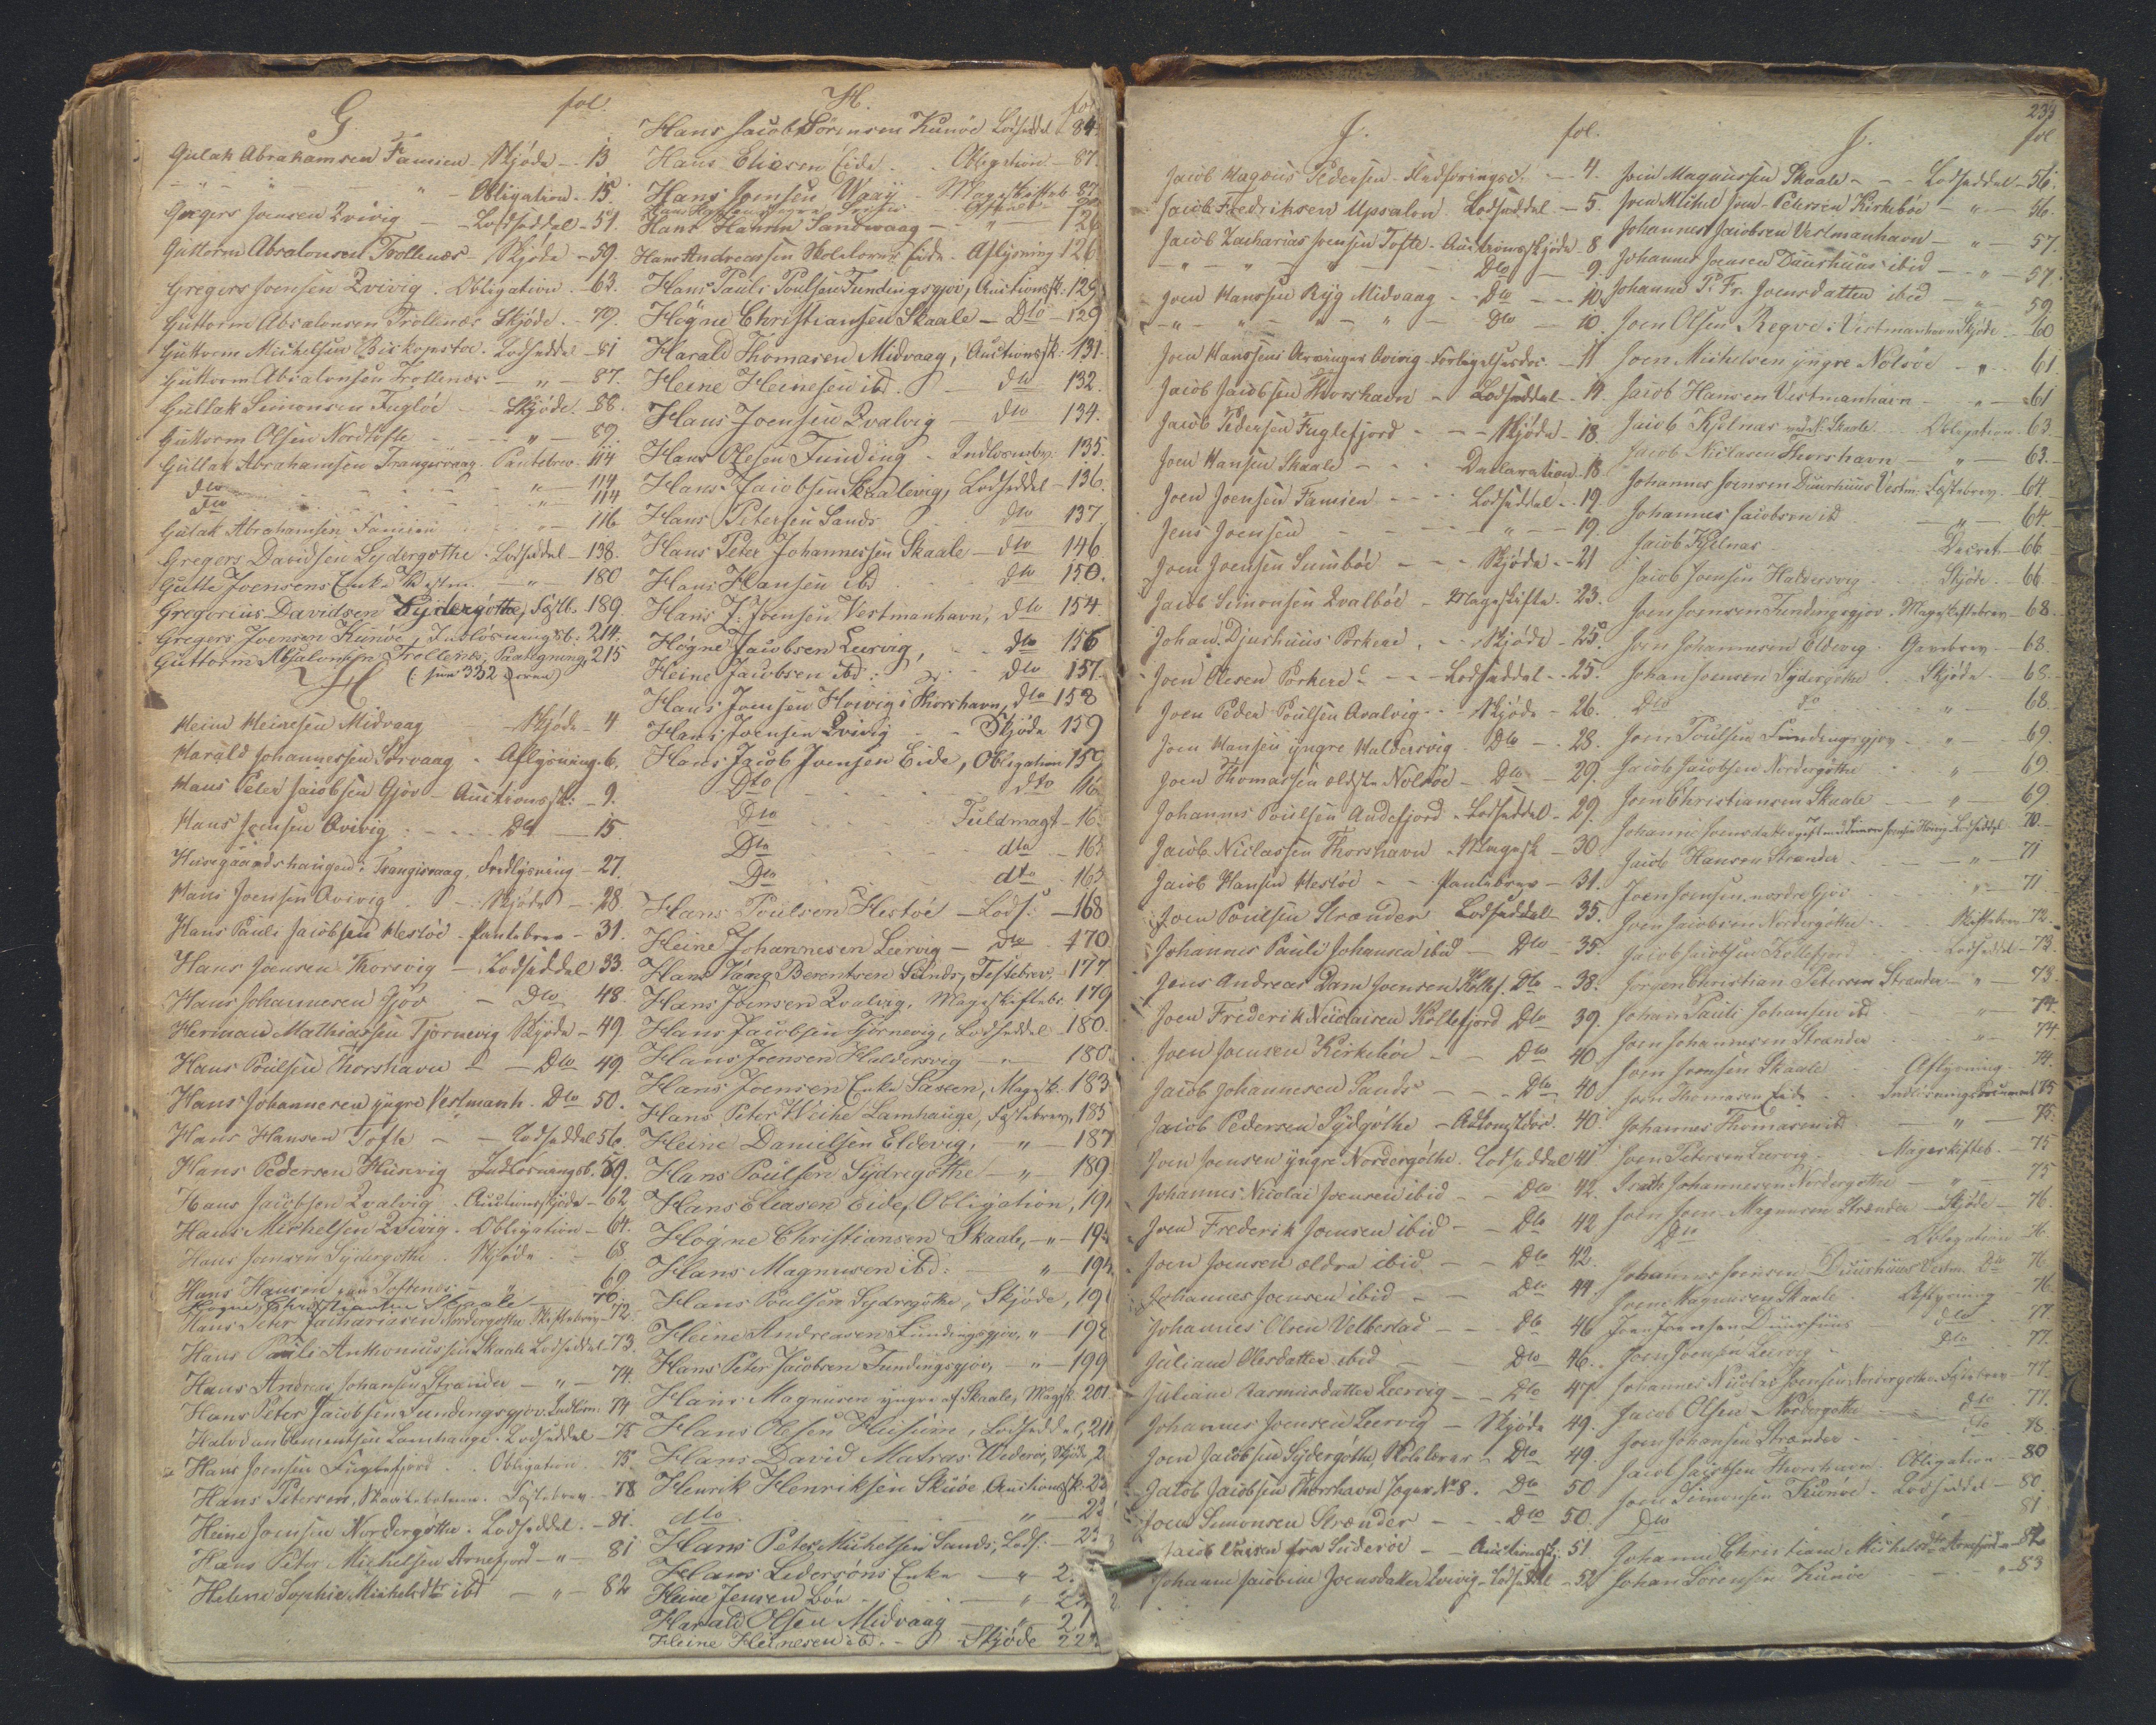 G. fol.
Gulak Abrahamsen Famien Skjöde - 13
- " - " - " - Obligation - 15.
Gregers Joensen Qvivig - Lodseddel - 51.
Guttorm Absalonsen Trollenæs - Skjöde - 59.
Gregers Joensen Qvivig. Obligation - 63.
Guttorm Absalonsen Trollenæs Skjöde - 79.
Guttorm Michelsen Biskopstöe. Lodseddel - 81
Guttorm Absalonsen Trollenæs - " - 87.
Gullak Simonsen Fuglöe - Skjöde - 88.
Guttorm Olsen Nordtofte - " - 89
Gullak Abrahamsen Trangisvaag. Pantebrev. 114
dto " - 114
dto " 114
Gulak Abrahamsen Famien - " - 116
Gregers Davidsen Sydergöthe. Lodseddel - 138.
Gutte Joensens Enke Vestm. - " - 180
Gregorius Davidsen Sydergöthe, Festb. 189.
Gregers Joensen Kunöe, Indlösningsb. 214.
Guttorm Absalonsen Trollenæs, Paategning, 215
H
Heine Heinesen Midvaag Skjöde - 4
Harald Johannessen Sörvaag - Aflysning. 6.
Hans Peter Jacobsen Gjov - Auctionssk: - 9.
Hans Joensen Qvivig - Dto - 15.
Husegaardshaugen i Trangisvaag, Fredlysning - 27.
Hans Joensen Qvivig - Skjöde - 28.
Hans Pauli Jacobsen Hestöe - Pantebrev - 31.
Hans Joensen Thorsvig - Lodseddel 33.
Hans Johannesen Gjov - Dto 48.
Herman Mathiassen Tjornevig Skjöde - 49.
Hans Poulsen Thorshavn - Dto 49.
Hans Johannesen yngre Vestmanh. Dto 50.
Hans Hansen Tofte - Lodseddel 56.
Hans Pedersen Husevig Indlösningsb. 59.
Hans Jacobsen Qvalvig. Auctionsskjöde - 62
Hans Michelsen Qvivig. Obligation - 64.
Hans Joensen Sydergöthe. Skjöde - 68
Hans Hansen Toftenes - " - 69
Högne Christiansen Skaale - 70.
Hans Peter Zachariasen Nordergöthe Skiftebrev - 72.
Hans Pauli Anthoniussen Skaale Lodseddel - 73.
Hans Andreas Johansen Strænder - " - 74.
Hans Peter Jacobsen Fundingsgjov. Indlösn. 74
Halvdan Clementsen Lamhauge. Lodseddel - 75
Hans Joensen Fuglefjord. Obligation. 75.
Hans Petersen, Festebrev. - 78
Heine Joensen Nordergöthe. Lodseddel. - 81.
Hans Peter Michelsen Arnefjord - " - 81
Helene Sophie Michelsdtr ibd - " - 82
H. fol.
Hans Jacob Sörensen Kunöe Lodseddel 84.
Hans Eliesen Eide. Obligation - 87.
Hans Joensen Waaÿ - Mageskifteb. 87
Hans Hansen Sandvaag - " - 126
Hans Andreassen Skolelærer Eide. Aflysning 126
Hans Pauli Poulsen Fundingsgjov, Auctionssk. 129
Högne Christiansen Skaale - Dto - 129
Harald Thomasen Midvaag, Auctionssk: 131.
Heine Heinesen ibd. dto 132.
Hans Joensen Qvalvig - dto 134.
Hans Olesen Funding - Indlösnsby. 135.
Hans Jacobsen Skaalevig, Lodseddel - 136.
Hans Petersen Sands dto 137.
Hans Peter Johannessen Skaale - dto 146
Hans Hansen ibd dto 150.
Hans Z. Joensen Vestmanhavn, dto 154
Högne Jacobsen Leervig, dto 156
Heine Jacobsen ibd: dto 157.
Hans Joensen Hoivig i Thorshavn, dto 158
Hans Joensen Qvivig - Skjöde 159
Hans Jacob Joensen Eide, Obligation 159
Dto dto 16
Dto Fuldmagt - 16
Dto dto - 163
Dto dto - 163
Hans Poulsen Hestöe - Lods: - 168
Heine Johannesen Leervig - Dto 170
Hans Vaag Berentsen Sunds, Festebrev. - 177
Hans Joensen Qvalvig, Mageskiftebr. 179
Hans Jacobsen Tjörnevig, Lodseddel 180.
Hans Joensen Haldersvig - " - 180.
Hans Joensen Enke Saxen, Magesk. 183
Hans Peter Weihe Lamhauge, Festebrev, 185
Heine Danielsen Eldevig, - " - 187
Hans Poulsen Sydregöthe - " - 189
Hans Eliasen Eide, Obligation, 191
Högne Christiansen Skaale, - " - 19
Hans Magnusen ibd: " - 19
Hans Poulsen Sydregöthe, Skjöde, 19
Heine Andreasen Fundingsgjov, " - 198
Hans Peter Jacobsen Fundingsgjov, - " - 199
Hans Magnusen yngre af Skaale, Magsk. 201
Hans Olesen Husum, Lodseddel, 211
Hans David Matras Wideröe, Skjöde, 2
Henrik Henriksen Sküöe, Auctionssk. 22
dto " 22
Hans Peter Michelsen Sands, Lods: - 2
Hans Ledersöns Enke - " 2
Heine Jensen Böe - " 2
Harald Olsen Midvaag - " 21
Heine Heinesen ibd. - Skjöde 22
233
J. fol.
Jacob Magnus Pedersen - 4.
Jacob Fredriksen Upsalon. Lodseddel - 5.
Jacob Zacharias Joensen Tofte - Auctionsskjöde 8
- " - " - " Dto - 9.
Joen Hanssen Ryg Midvaag - Dto - 10.
- " - " - " - Dto - 10.
Joen Hanssens Arvinger Qvivig - 11
Jacob Jacobsen Thorshavn - Lodseddel - 14.
Jacob Pedersen Fuglefjord - Skjöde - 18.
Joen Hansen Skaale - Declaration - 18.
Joen Joensen Famien - Lodseddel - 19.
Jens Joensen - " - 19.
Joen Joensen Sumböe - Skjöde - 21
Jacob Simonsen Qvalböe - Mageskifte. 23.
Johan Djurhuus Porkere - Skjöde - 25.
Joen Olesen Porkere - Lodseddel - 25.
Joen Peder Poulsen Qvalvig - Skjöde - 26.
Joen Hansen yngre Haldersvig. Dto - 28.
Joen Thomassen eldste Nolsöe - Dto - 29.
Johannes Poulsen Andefjord - Lodseddel - 29.
Jacob Niclassen Thorshavn - Magesk - 30.
Jacob Hansen Hestöe - Pantebrev - 31.
Joen Poulsen Strænder Lodseddel - 35.
Johannes Pauli Johansen ibid - Dto - 35.
Jens Andreas Dam Joensen Kollf. Dto - 38.
Joen Frederik Nicolaisen Kollefjord Dto 39.
Joen Joensen Kirkeböe - Dto 40.
Jacob Johannesen Sands - Dto 40.
Jacob Pedersen Sydgöthe - 40.
Joen Joensen yngre Nordergöthe. Lodseddel 41.
Johannes Nicolai Joensen ibid - Dto 42.
Joen Frederik Joensen ibid - Dto 42
Joen Joensen ældre ibid - Dto 42.
Johannes Joensen ibid - Dto 44.
Johannes Olsen Velbestad - Dto 46
Juliane Olesdatter ibid - Dto 46.
Juliane Rasmusdatter Leervig - Dto 47.
Johannes Joensen Leervig - Skjöde 49.
Joen Jacobsen Sydergöthe, Skolelærer - Dto 49.
Jacob Jacobsen Thorshavn No 8. Dto 50
Joen Simonsen Strænder - Dto 50.
Jacob fra Suderöe - Auctionssk. 51
Johanne Jacobine Joensdatter Qvivig - Lodseddel - 52
J. fol
Joen Magnussen Skaale - Lodseddel - 56.
Joen Mikkel Joen-Petersen Kirkeböe - " - 56.
Johannes Jacobsen Vestmanhavn - " - 57.
Johannes Joensen Duurhuus ibid - " - 57.
Johanne P. Fr. Joensdatter ibid - " - 59
Joen Olsen Regve i Vestmanhavn Skjöde - 60
Joen Michelsen yngre Nolsöe - " - 61
Jacob Hansen Vestmanhavn - " - 61
Jacob Kjelnæs Skaale - Obligation - 63
Jacob Niclasen Thorshavn " - 63.
Johannes Joensen Duurhuus Vestm. Festebrev. - 64.
Johannes Jacobsen ibd - " - 64.
Jacob Kjelnæs Decret - 66.
Jacob Joensen Haldersvig Skjöde - 66.
Joen Joensen Fundingsgjov. Mageskiftebrev - 68.
Joen Johannesen Eldevig. Gavebrev. - 68.
Johan Joensen Sydergöthe. Skjöde. - 68.
Dto do " - 68.
Joen Poulsen Fundingsgjov - " - 69.
Jacob Jacobsen Nordergöthe " 69
Joen Christiansen Skaale - " - 69.
Johanne Joensdatter Lodseddel - 70.
Jacob Hansen Strænder - " - 71
Joen Joensen, nordre Gjov - " - 71.
Joen Jacobsen Nordergöthe - Skiftebrev - 72.
Jacob Jacobsen Kollefjord Lodseddel - 73.
Jörgen Christian Petersen Strænder - " - 73.
Johan Pauli Johansen ibd " - 74.
Joen Johannesen Strænder " - 74
Joen Joensen Skaale Aflysning - 74.
Joen Thomasen Eide. Indlösningsdocument 75
Johannes Thomasen ibd - " - 75.
Joen Petersen Leervig. Mageskifteb. - 75
Johannesen Nordergöthe - " - 75
Joen Joen-Magnusen Strænder - Skjöde - 76.
Dto - Obligation - 76
Johannes Joensen Duurhuus Vestm. Dto 76
Joen Magnusen Skaale. Aflysning - 76.
Joen Joensen Duurhuus dto - 77
Joen Joensen Leervig - Dto - 77.
Johannes Nicolai Joensen Nordergöthe. Festebrev. - 77.
Jacob Olsen - Nordergöthe dto - 77.
Joen Johansen Strænder. dto 78.
Jacob Jacobsen Thorshavn. Obligation - 80
Joen Simonsen Kunöe. Lodseddel - 80.
Dto " 81
Johanne Christiane Michelsdtr Arnefjord - 82
Johan Sörensen Kunöe " - 83